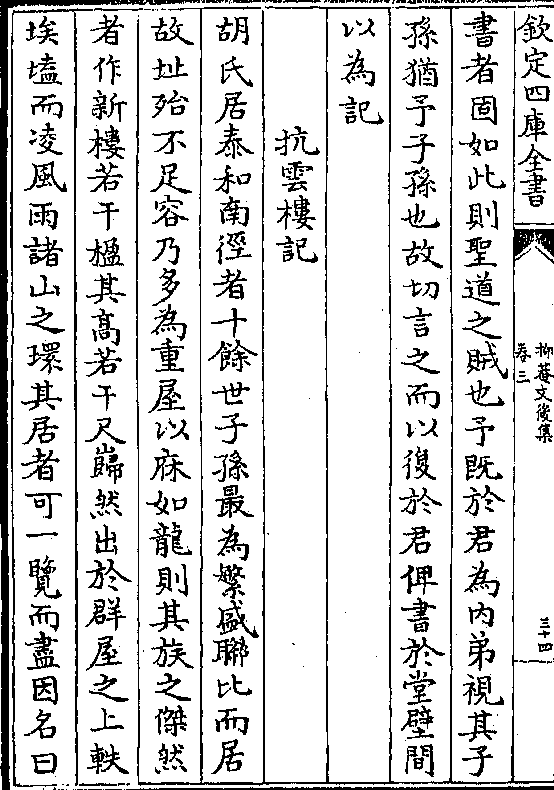 欽定四庫全書
抑菴文後集
卷三
三十四
書者固如此則聖道之賊也予既於君為内弟視其子
孫猶予子孫也故切言之而以復於君俾書於堂壁間
以為記
抗雲樓記
胡氏居泰和南徑者十餘世子孫最為繁盛聯比而居
故址殆不足容乃多為重屋以庥如龍則其族之傑然
者作新樓若干楹其髙若干尺巋然出於群屋之上軼
埃壒而凌風雨諸山之環其居者可一覽而盡因名曰